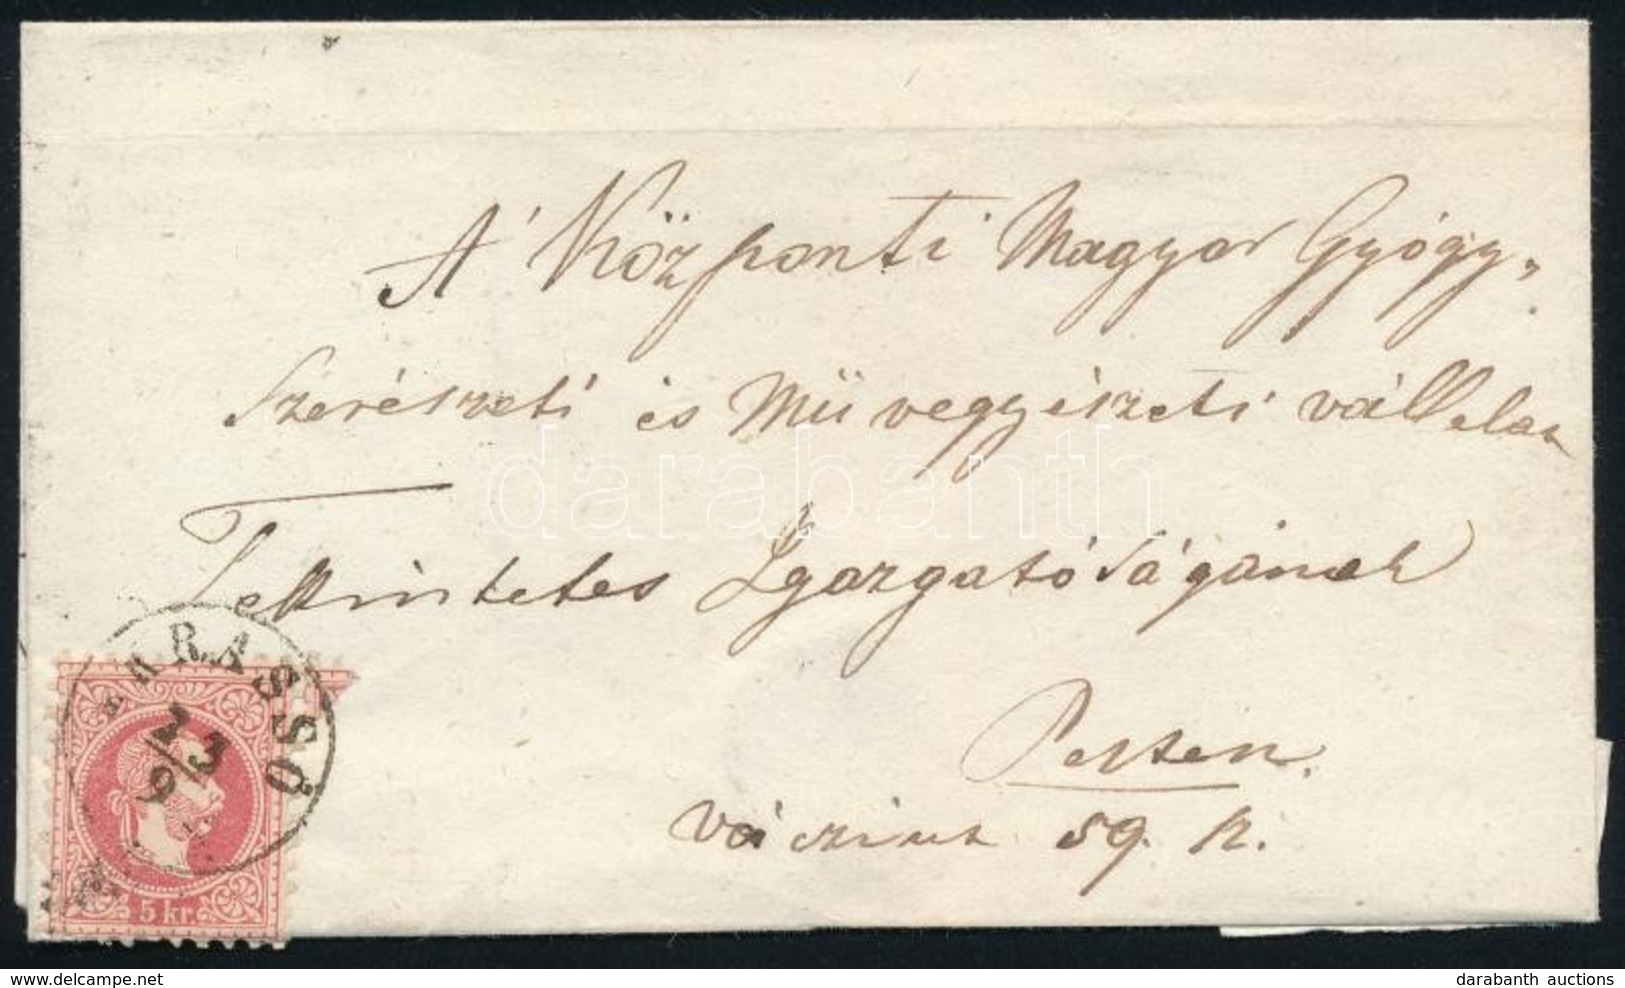 A' Központi Magyar Gyógy„
Szerészeti és Müvegyészeti vállalat
Tekintetes Igazgatóságának
Pesten.
váczi út 59. sz.
KARASSÓ
2/3
9
5 kr.
darabanth
delcampe.net
darabanth auctions